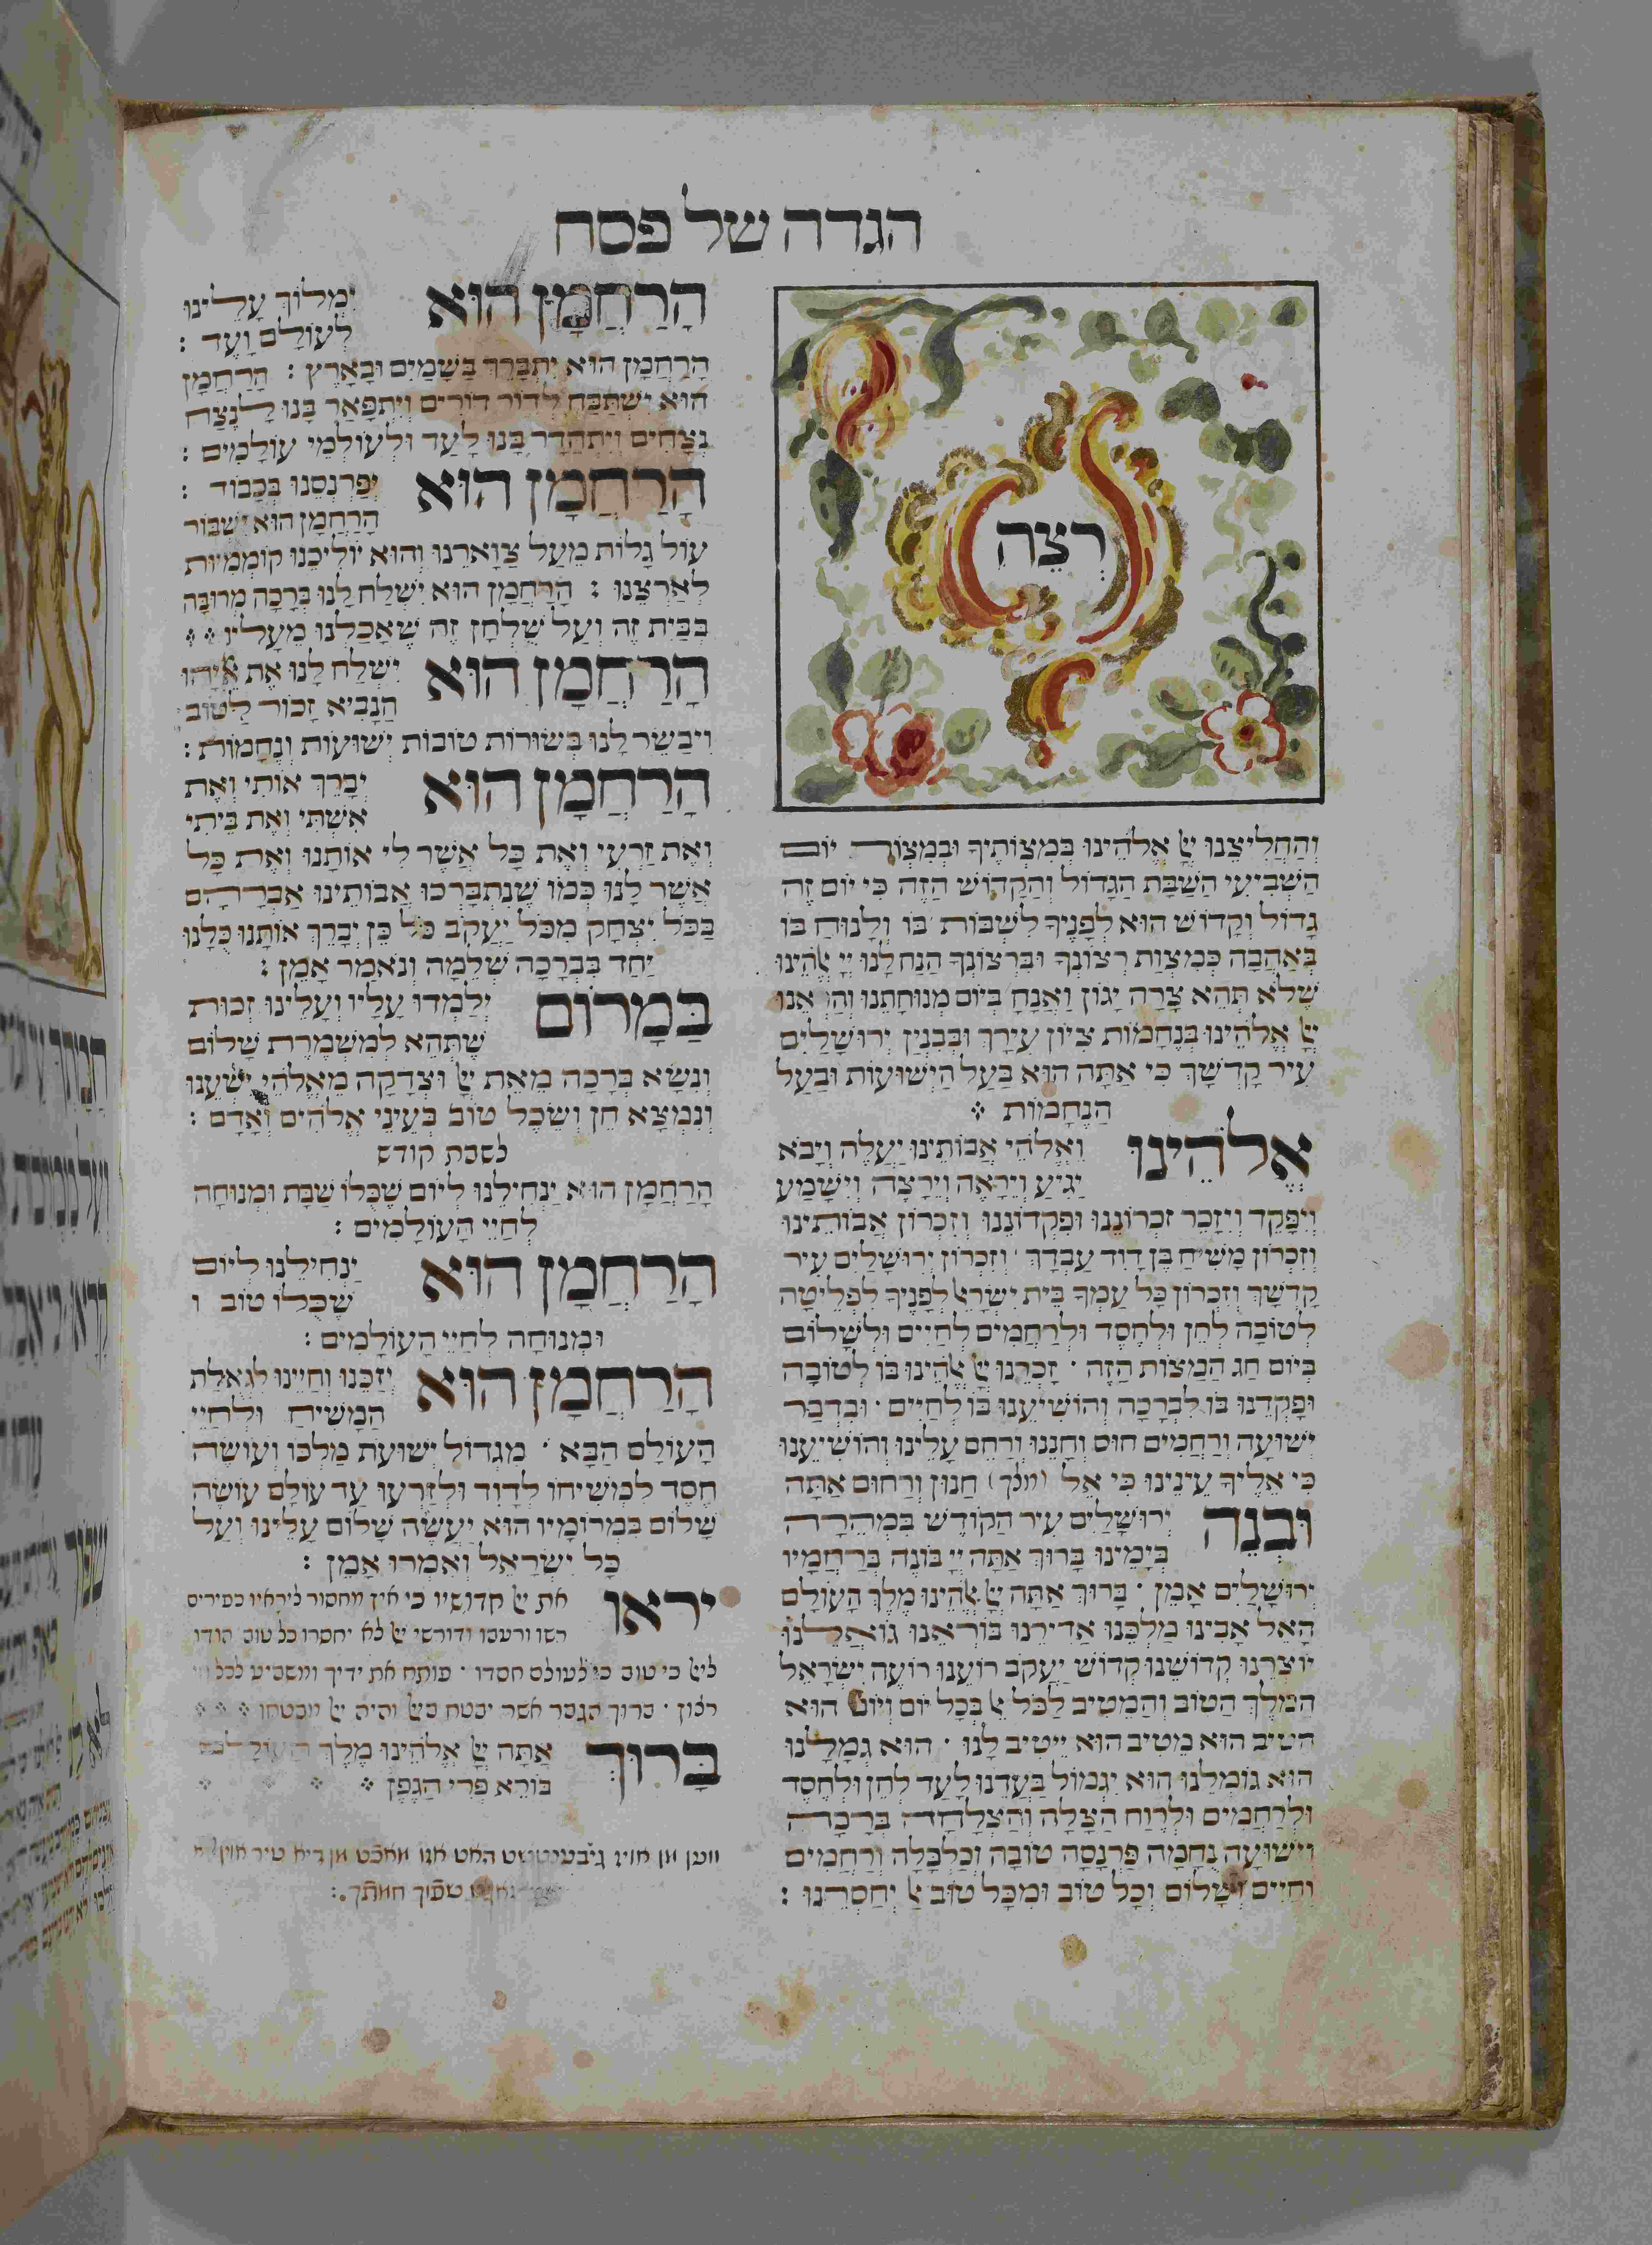 הגדה של פסח
רְצֵה
וְהַחֲלִיצֵנוּ יְיָ אֱלֹהֵינוּ בְּמִצְוֹתֶיךָ וּבְמִצְוֹת יוֹם
הַשְּׁבִיעִי הַשַּׁבָּת הַגָּדוֹל וְהַקָּדוֹשׁ הַזֶּה כִּי יוֹם זֶה
גָּדוֹל וְקָדוֹשׁ הוּא לְפָנֶיךָ לִשְׁבּוֹת בּוֹ וְלָנוּחַ בּוֹ
בְּאַהֲבָה כְּמִצְוַת רְצוֹנֶךָ וּבִרְצוֹנְךָ הָנַח לָנוּ יְיָ אֱלֹהֵינוּ
שֶׁלֹּא תְּהֵא צָרָה יָגוֹן וַאֲנָחָ׳ בְּיוֹם מְנוּחָתֵנוּ וְהַרְאֵנוּ
יְיָ אֱלֹהֵינוּ בְּנֶחָמוֹת צִיּוֹן עִירֶךָ וּבְבִנְיַן יְרוּשָׁלַיִם
עִיר קָדְשֶׁךָ כִּי אַתָּה הוּא בַּעַל הַיְשׁוּעוֹת וּבַעַל
הַנֶּחָמוֹת
אֱלֹהֵינוּ וֵאלֹהֵי אֲבוֹתֵינוּ יַעֲלֶה וְיָבֹא
יַגִּיעַ וְיֵרָאֶה וְיֵרָצֶה וְיִשָּׁמַע
וְיִפָּקֵד וְיִזָּכֵר זִכְרוֹנֵנוּ וּפִקְדוֹנֵנוּ וְזִכְרוֹן אֲבוֹתֵינוּ
וְזִכְרוֹן מָשִׁיחַ בֶּן דָּוִד עַבְדֶּךָ וְזִכְרוֹן יְרוּשָׁלַיִם עִיר
קָדְשֶׁךָ וְזִכְרוֹן כָּל עַמְּךָ בֵּית יִשְׂרָאֵל לְפָנֶיךָ לִפְלֵיטָה
לְטוֹבָה לְחֵן וּלְחֶסֶד וּלְרַחֲמִים לְחַיִּים וּלְשָׁלוֹם
בְּיוֹם חַג הַמַּצּוֹת הַזֶּה · זָכְרֵנוּ יְיָ אֱלֹהֵינוּ בּוֹ לְטוֹבָה
וּפָקְדֵנוּ בּוֹ לִבְרָכָה וְהוֹשִׁיעֵנוּ בּוֹ לְחַיִּים · וּבִדְבַר
יְשׁוּעָה וְרַחֲמִים חוּס וְחָנֵּנוּ וְרַחֵם עָלֵינוּ וְהוֹשִׁיעֵנוּ
כִּי אֵלֶיךָ עֵינֵינוּ כִּי אֵל (מלך) חַנּוּן וְרַחוּם אַתָּה
וּבְנֵה יְרוּשָׁלַיִם עִיר הַקּוֹדֶשׁ בִּמְהֵרָה
בְּיָמֵינוּ בָּרוּךְ אַתָּה יְיָ בּוֹנֶה בְּרַחֲמָיו
יְרוּשָׁלַיִם אָמֵן · בָּרוּךְ אַתָּה יְיָ אֱלֹהֵינוּ מֶלֶךְ הָעוֹלָם
הָאֵל אָבִינוּ מַלְכֵּנוּ אַדִּירֵנוּ בּוֹרְאֵנוּ גּוֹאֲלֵנוּ
יוֹצְרֵנוּ קְדוֹשֵׁנוּ קְדוֹשׁ יַעֲקֹב רוֹעֵנוּ רוֹעֵה יִשְׂרָאֵל
הַמֶּלֶךְ הַטּוֹב וְהַמֵּטִיב לַכֹּל אֵל בְּכָל יוֹם וְיוֹם הוּא
הֵטִיב הוּא מֵטִיב הוּא יֵיטִיב לָנוּ · הוּא גְמָלָנוּ
הוּא גּוֹמְלֵנוּ הוּא יִגְמוֹל בַּעֲדֵנוּ לָעַד לְחֵן וּלְחֶסֶד
וּלְרַחֲמִים וּלְרֶוַח הַצָּלָה וְהַצְלָחָה בְּרָכָה
וִישׁוּעָה נֶחָמָה פַּרְנָסָה טוֹבָה וְכַלְכָּלָה וְרַחֲמִים
וְחַיִּים וְשָׁלוֹם וְכָל טוֹב וּמִכָּל טוֹב אַל יְחַסְּרֵנוּ :
הָרַחֲמָן הוּא יִמְלוֹךְ עָלֵינוּ
לְעוֹלָם וָעֶד :
הָרַחֲמָן הוּא יִתְבָּרֵךְ בַּשָּׁמַיִם וּבָאָרֶץ : הָרַחֲמָן
הוּא יִשְׁתַּבַּח לְדוֹר דּוֹרִים וְיִתְפָּאַר בָּנוּ לָנֶצַח
נְצָחִים וְיִתְהַדַּר בָּנוּ לָעַד וּלְעוֹלְמֵי עוֹלָמִים :
הָרַחֲמָן הוּא יְפַרְנְסֵנוּ בְּכָבוֹד :
הָרַחֲמָן הוּא יִשְׁבּוֹר
עוֹל גָּלוּת מֵעַל צַוָּארֵנוּ וְהוּא יוֹלִיכֵנוּ קוֹמְמִיּוּת
לְאַרְצֵנוּ : הָרַחֲמָן הוּא יִשְׁלַח לָנוּ בְּרָכָה מְרוּבָּה
בְּבַיִת זֶה וְעַל שֻׁלְחָן זֶה שֶׁאָכַלְנוּ מֵעָלָיו
הָרַחֲמָן הוּא יִשְׁלַח לָנוּ אֶת אֵלִיָּהוּ
הַנָּבִיא זָכוּר לַטּוֹב
וִיבַשֵּׂר לָנוּ בְּשׂוֹרוֹת טוֹבוֹת יְשׁוּעוֹת וְנֶחָמוֹת :
הָרַחֲמָן הוּא יְבָרֵךְ אוֹתִי וְאֶת
אִשְׁתִּי וְאֶת בֵּיתִי
וְאֶת זַרְעִי וְאֶת כָּל אֲשֶׁר לִי אוֹתָנוּ וְאֶת כָּל
אֲשֶׁר לָנוּ כְּמוֹ שֶׁנִּתְבָּרְכוּ אֲבוֹתֵינוּ אַבְרָהָם
בַּכֹּל יִצְחָק מִכֹּל יַעֲקֹב כֹּל כֵּן יְבָרֵךְ אוֹתָנוּ כֻּלָּנוּ
יַחַד בִּבְרָכָה שְׁלֵמָה וְנֹאמַר אָמֵן :
בַּמָּרוֹם יְלַמְּדוּ עָלָיו וְעָלֵינוּ זְכוּת
שֶׁתְּהֵא לְמִשְׁמֶרֶת שָׁלוֹם
וְנִשָּׂא בְּרָכָה מֵאֵת יְיָ וּצְדָקָה מֵאֱלֹהֵי יִשְׁעֵנוּ
וְנִמְצָא חֵן וְשֵׂכֶל טוֹב בְּעֵינֵי אֱלֹהִים וְאָדָם :
לשבת קודש
הָרַחֲמָן הוּא יַנְחִילֵנוּ לְיוֹם שֶׁכֻּלּוֹ שַׁבָּת וּמְנוּחָה
לְחַיֵּי הָעוֹלָמִים :
הָרַחֲמָן הוּא יַנְחִילֵנוּ לְיוֹם
שֶׁכֻּלּוֹ טוֹב ו
וּמְנוּחָה לְחַיֵּי הָעוֹלָמִים :
הָרַחֲמָן הוּא יְזַכֵּנוּ וְחַיֵּינוּ לִגְאֻלַּת
הַמָּשִׁיחַ וּלְחַיֵּי
הָעוֹלָם הַבָּא · מִגְדּוֹל יְשׁוּעֹת מַלְכּוֹ וְעוֹשֶׂה
חֶסֶד לִמְשִׁיחוֹ לְדָוִד וּלְזַרְעוֹ עַד עוֹלָם עוֹשֶׂה
שָׁלוֹם בִּמְרוֹמָיו הוּא יַעֲשֶׂה שָׁלוֹם עָלֵינוּ וְעַל
כָּל יִשְׂרָאֵל וְאִמְרוּ אָמֵן :
יראו את יי קדושיו כי אין מחסור ליראיו כפירים
רשו ורעבו ודורשי יי לא יחסרו כל טוב הודו
ליי כי טוב כי לעולם חסדו · פותח את ידיך ומשביע לכל חי
רצון · ברוך הגבר אשר יבטח ביי והיה יי מבטחו
בָּרוּךְ אַתָּה יְיָ אֱלֹהֵינוּ מֶלֶךְ הָעוֹלָם
בּוֹרֵא פְּרִי הַגֶּפֶן
ווען מן אויז גיבענטשט האט אונ מאכט מן דיא טיר אויף
שפוך חמתך :